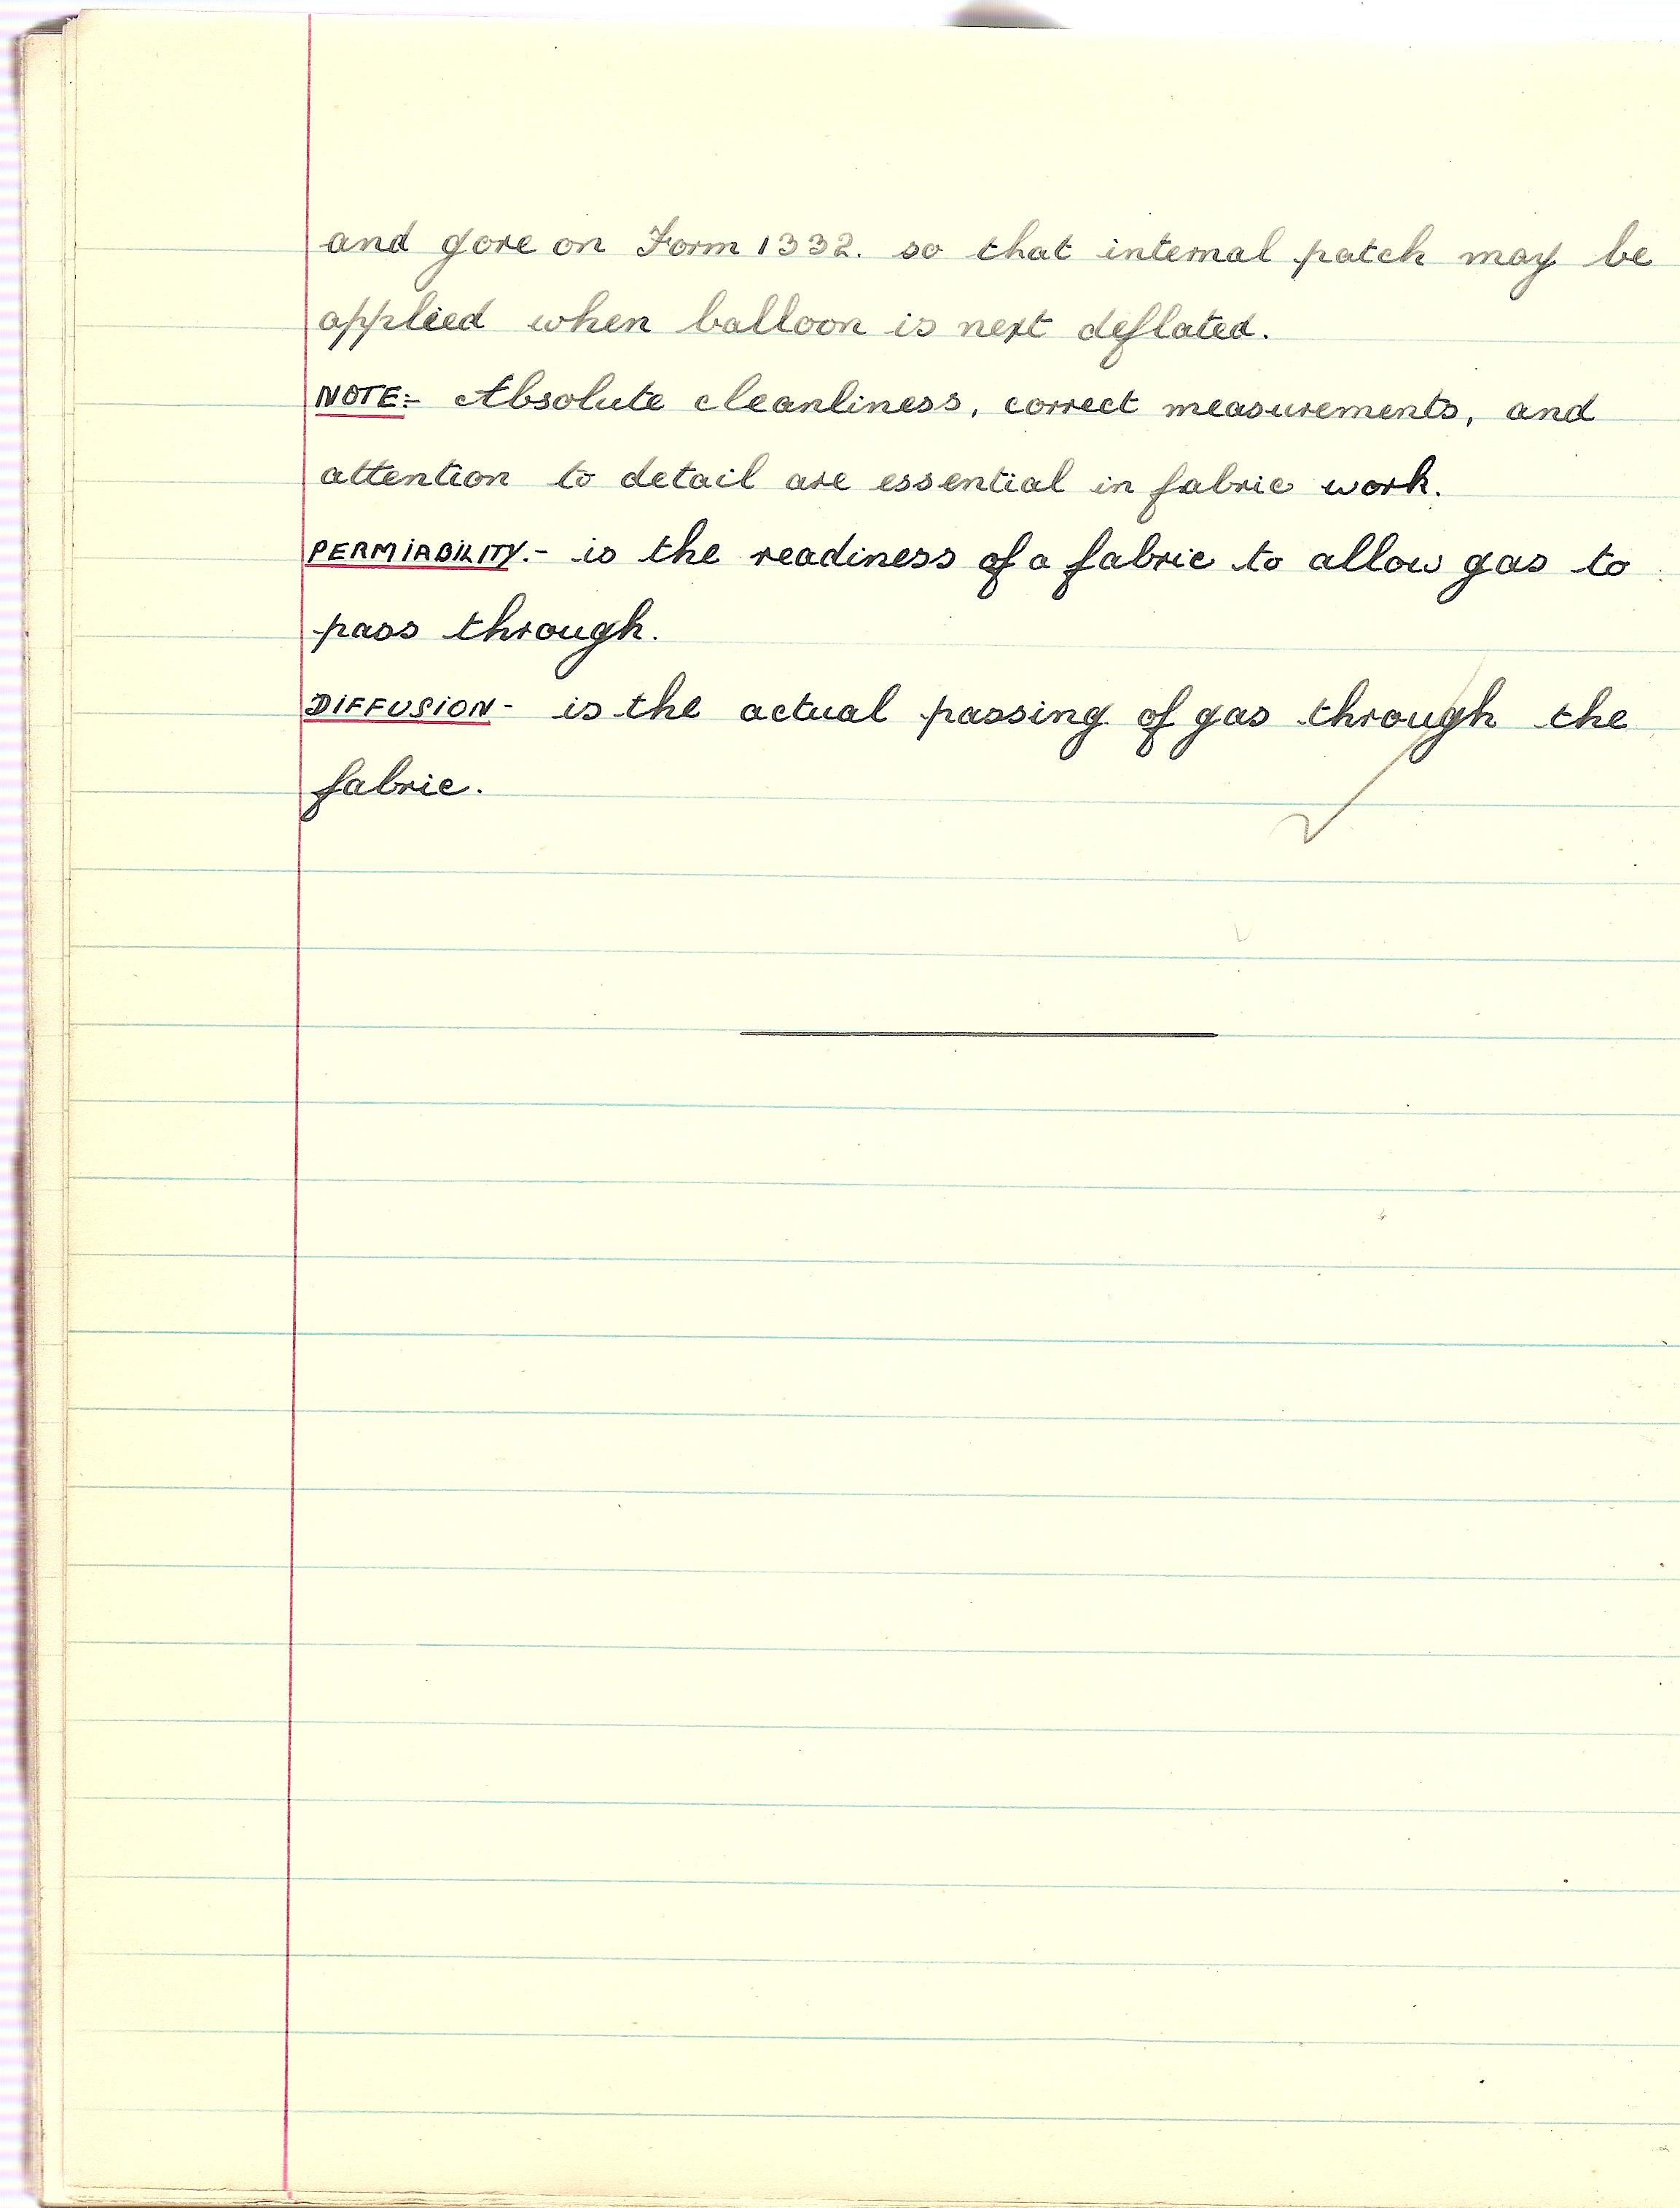 and gore on Form 1332. so that internal patch may be
applied when balloon is next deflated.
NOTE:- Absolute cleanliness, correct measurements, and
attention to detail are essential in fabric work.
PERMIABILITY.- is the readiness of a fabric to allow gas to
pass through.
DIFFUSION- is the actual passing of gas through the
fabric.